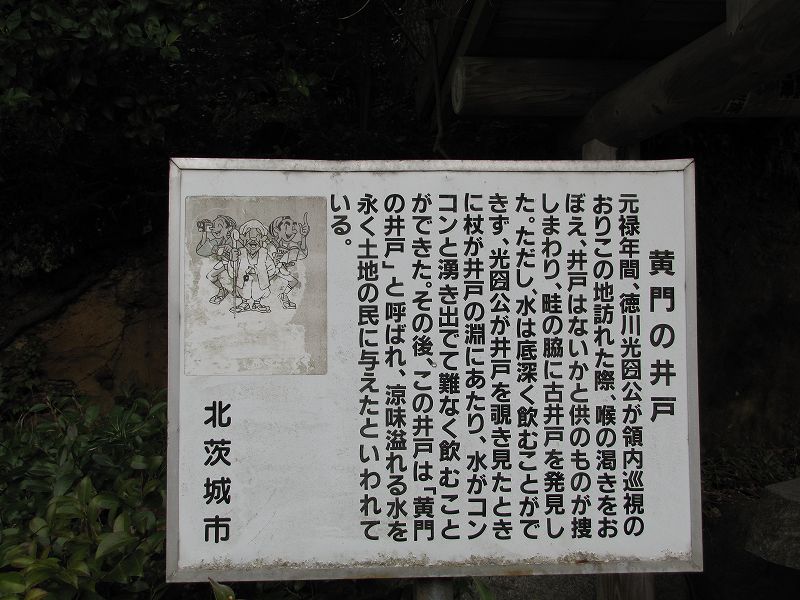 黄門の井戸
元禄年間、徳川光圀公が領内巡視の
おりこの地訪れた際、喉の渇きをお
ぼえ、井戸はないかと供のものが捜
しまわり、畦の脇に古井戸を発見し
た。ただし、水は底深く飲むことがで
きず、光圀公が井戸を覗き見たとき
に杖が井戸の淵にあたり、水がコン
コンと湧き出でて難なく飲むこと
ができた。その後、この井戸は「黄門
の井戸」と呼ばれ、涼味溢れる水を
永く土地の民に与えたといわれて
いる。
北茨城市